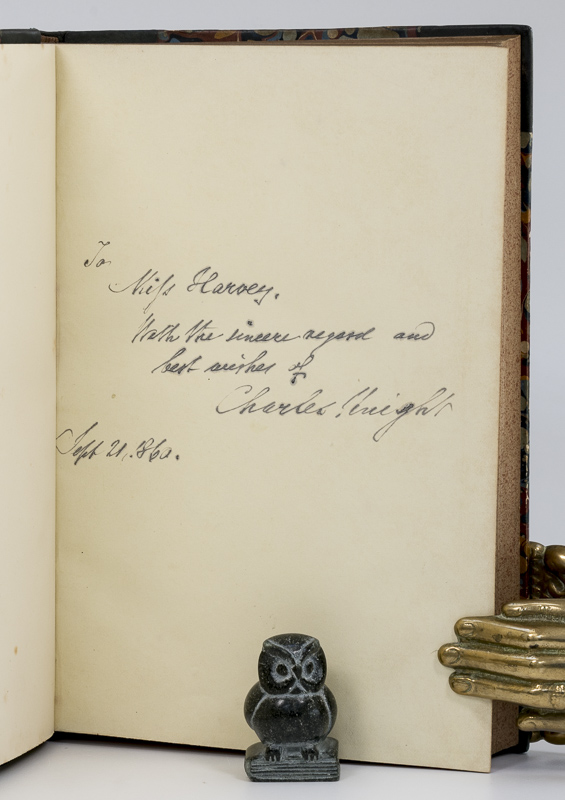 To
Miss Harvey.
With the sincere regard and
best wishes of
Charles Knight
Sept 21, 1860.